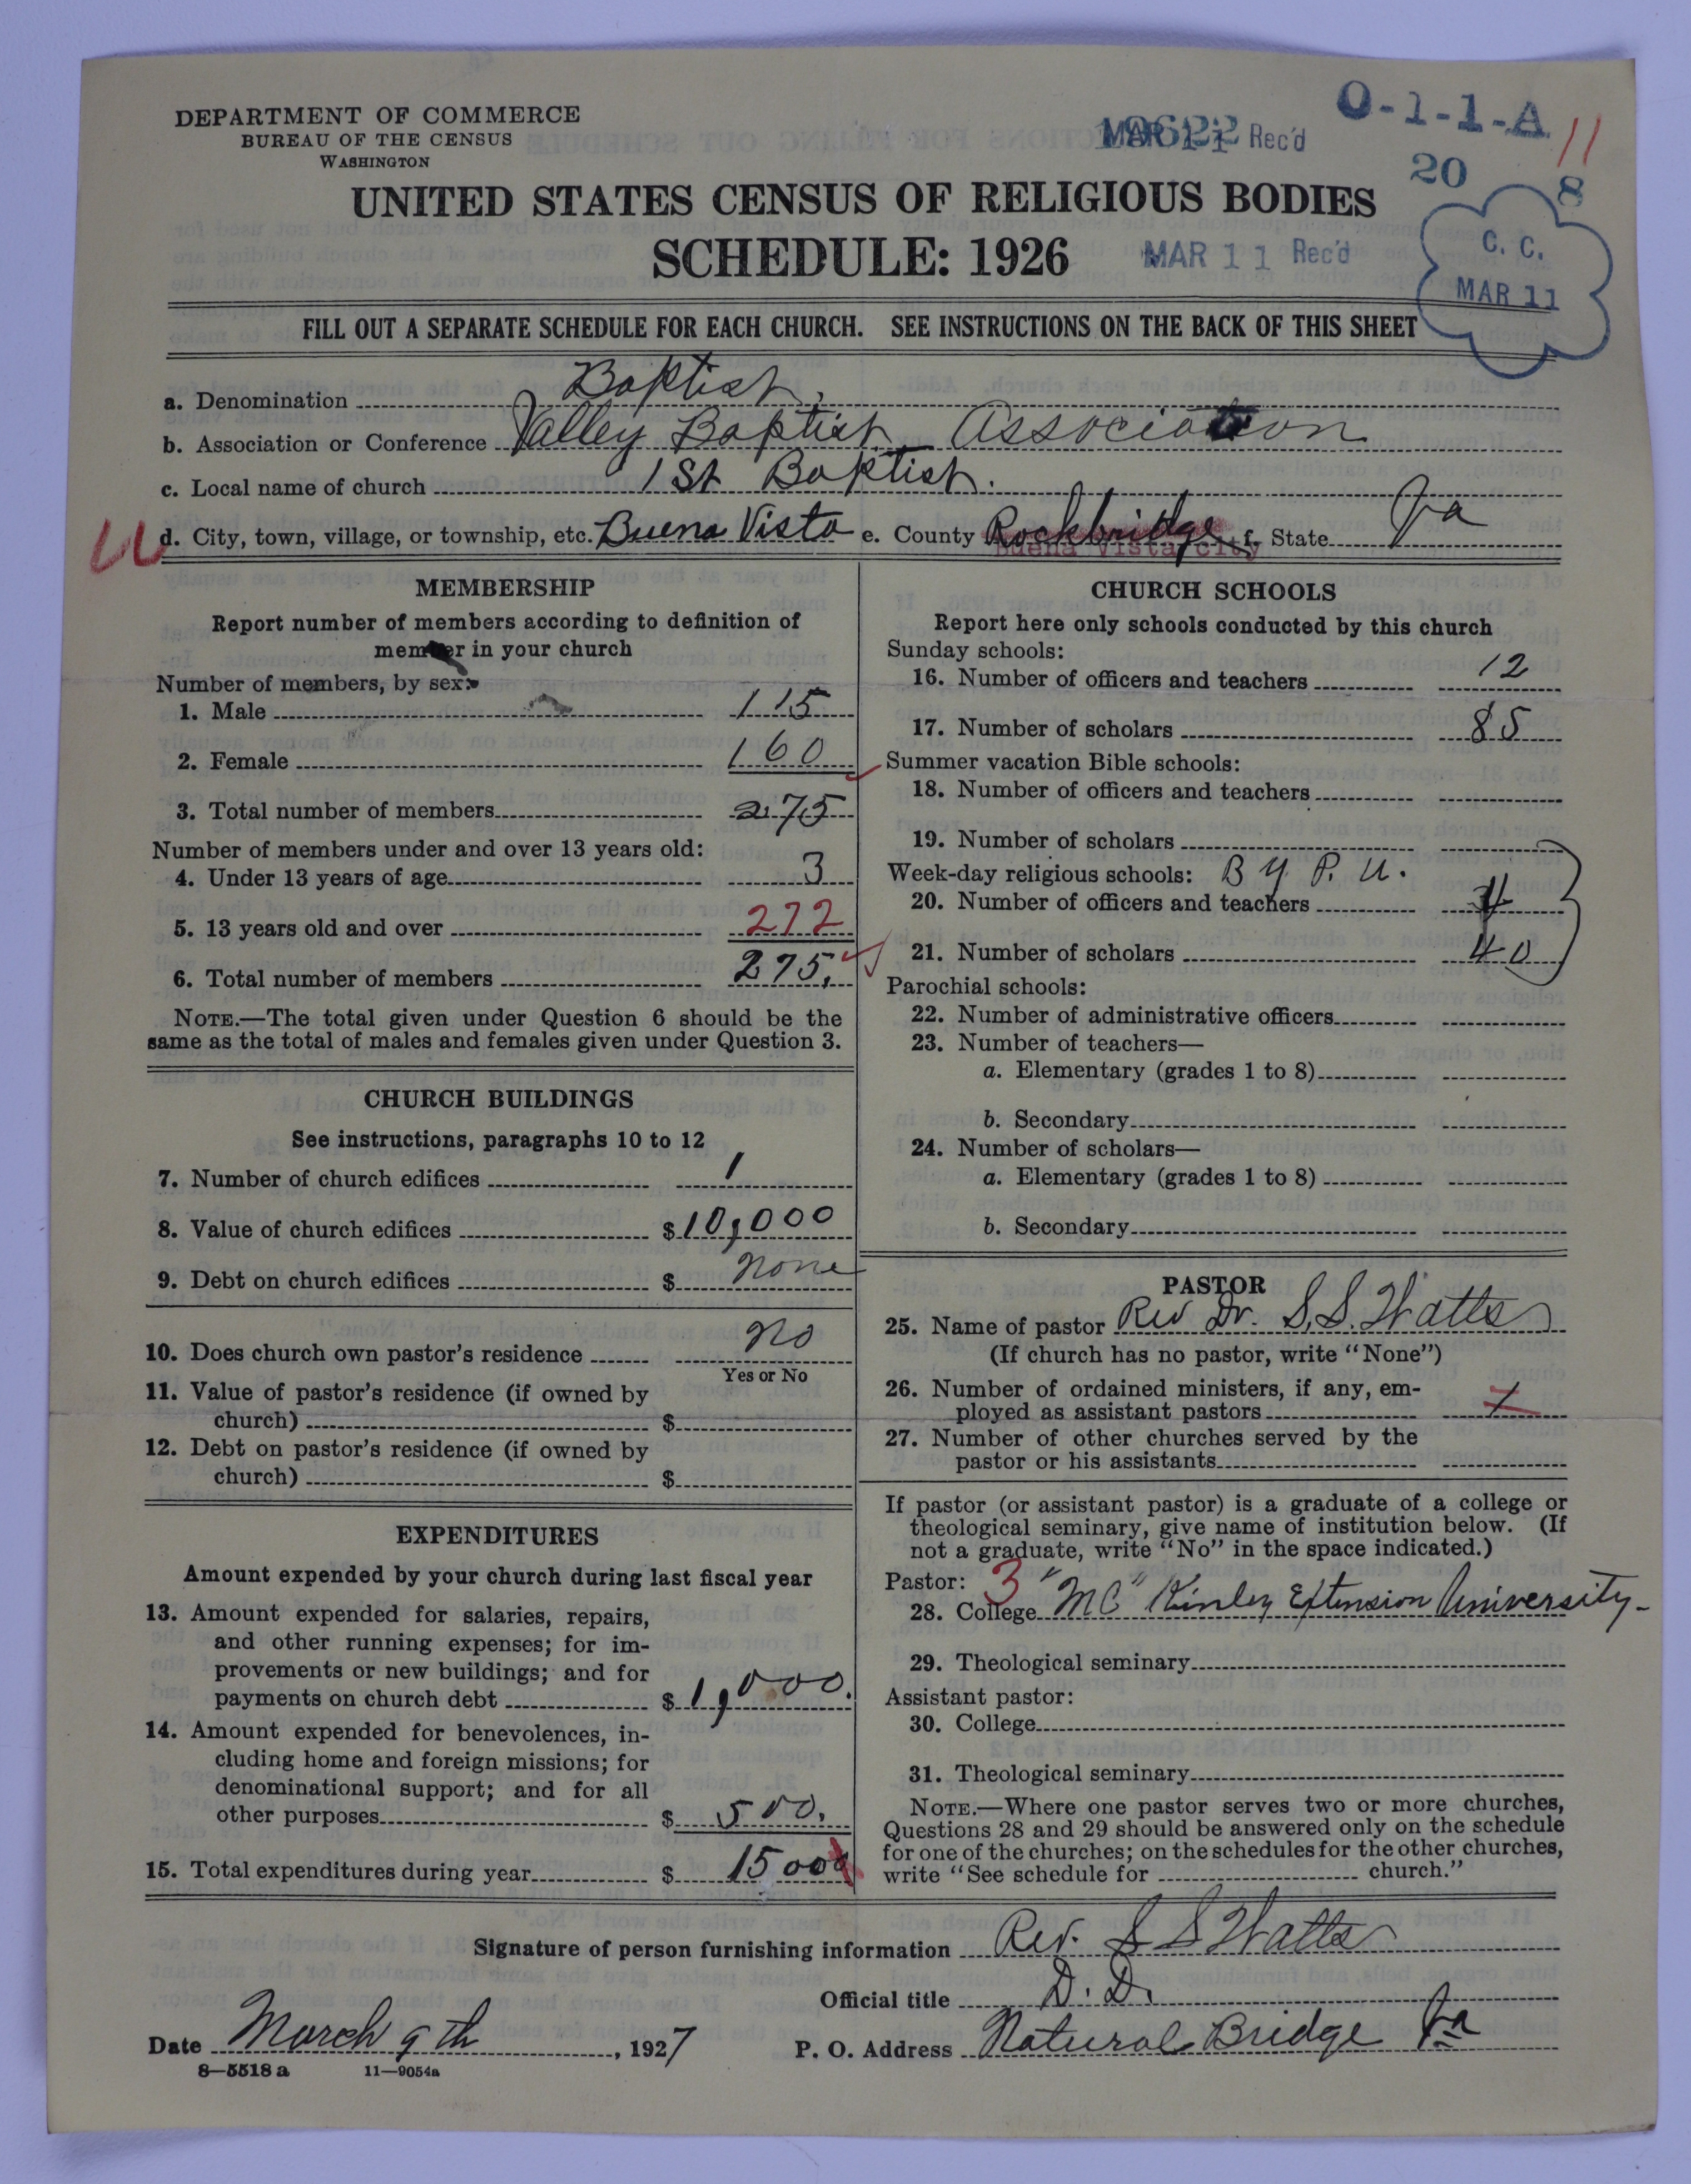 DEPARTMENT OF COMMERCE
BUREAU OF THE CENSUS
WASHINGTON
O-1-1-A
11
MAR 11 Rec'd
19622
20 8
UNITED STATES CENSUS OF RELIGIOUS BODIES
SCHEDULE: 1926
MAR 11 Rec'd
C. C.
MAR 11
FILL OUT A SEPARATE SCHEDULE FOR EACH CHURCH. SEE INSTRUCTIONS ON THE BACK OF THIS SHEET
a. Denomination Baptist,
b. Association or Conference Valley Baptist Association
c. Local name of church 1st Baptist.
d. City, town, village, or township, etc. Buena Vista e. County Rockbridge f. State Va
Buena Vista city
MEMBERSHIP
Report number of members according to definition of
member in your church
Number of members, by sex:
1. Male 115
2. Female 160
3. Total number of members 275
Number of members under and over 13 years old:
4. Under 13 years of age 3
5. 13 years old and over 272
6. Total number of members 275.
NOTE.—The total given under Question 6 should be the
same as the total of males and females given under Question 3.
CHURCH BUILDINGS
See instructions, paragraphs 10 to 12
7. Number of church edifices 1
8. Value of church edifices $10,000
9. Debt on church edifices $ none
10. Does church own pastor's residence no
Yes or No
11. Value of pastor's residence (if owned by
church) $
12. Debt on pastor's residence (if owned by
church) $
EXPENDITURES
Amount expended by your church during last fiscal year
13. Amount expended for salaries, repairs,
and other running expenses; for im-
provements or new buildings; and for
payments on church debt $1,000.
14. Amount expended for benevolences, in-
cluding home and foreign missions; for
denominational support; and for all
other purposes $ 500.
15. Total expenditures during year $ 1500
CHURCH SCHOOLS
Report here only schools conducted by this church
Sunday schools:
16. Number of officers and teachers 12
17. Number of scholars 85
Summer vacation Bible schools:
18. Number of officers and teachers
19. Number of scholars
Week-day religious schools: B Y P. U.
20. Number of officers and teachers 4
21. Number of scholars 40
Parochial schools:
22. Number of administrative officers
23. Number of teachers—
a. Elementary (grades 1 to 8)
b. Secondary
24. Number of scholars—
a. Elementary (grades 1 to 8)
b. Secondary
PASTOR
25. Name of pastor Rev Dr. S. S. Watts
(If church has no pastor, write "None")
26. Number of ordained ministers, if any, em-
ployed as assistant pastors 1
27. Number of other churches served by the
pastor or his assistants
If pastor (or assistant pastor) is a graduate of a college or
theological seminary, give name of institution below. (If
not a graduate, write "No" in the space indicated.)
Pastor: 3
28. College "MC" Kinley Extension University-
29. Theological seminary
Assistant pastor:
30. College
31. Theological seminary
NOTE.—Where one pastor serves two or more churches,
Questions 28 and 29 should be answered only on the schedule
for one of the churches; on the schedules for the other churches,
write "See schedule for church."
Signature of person furnishing information Rev. S S Watts
Official title D. D.
Date March 9th, 1927
P. O. Address Natural Bridge Va
8—5518 a 11—9054a